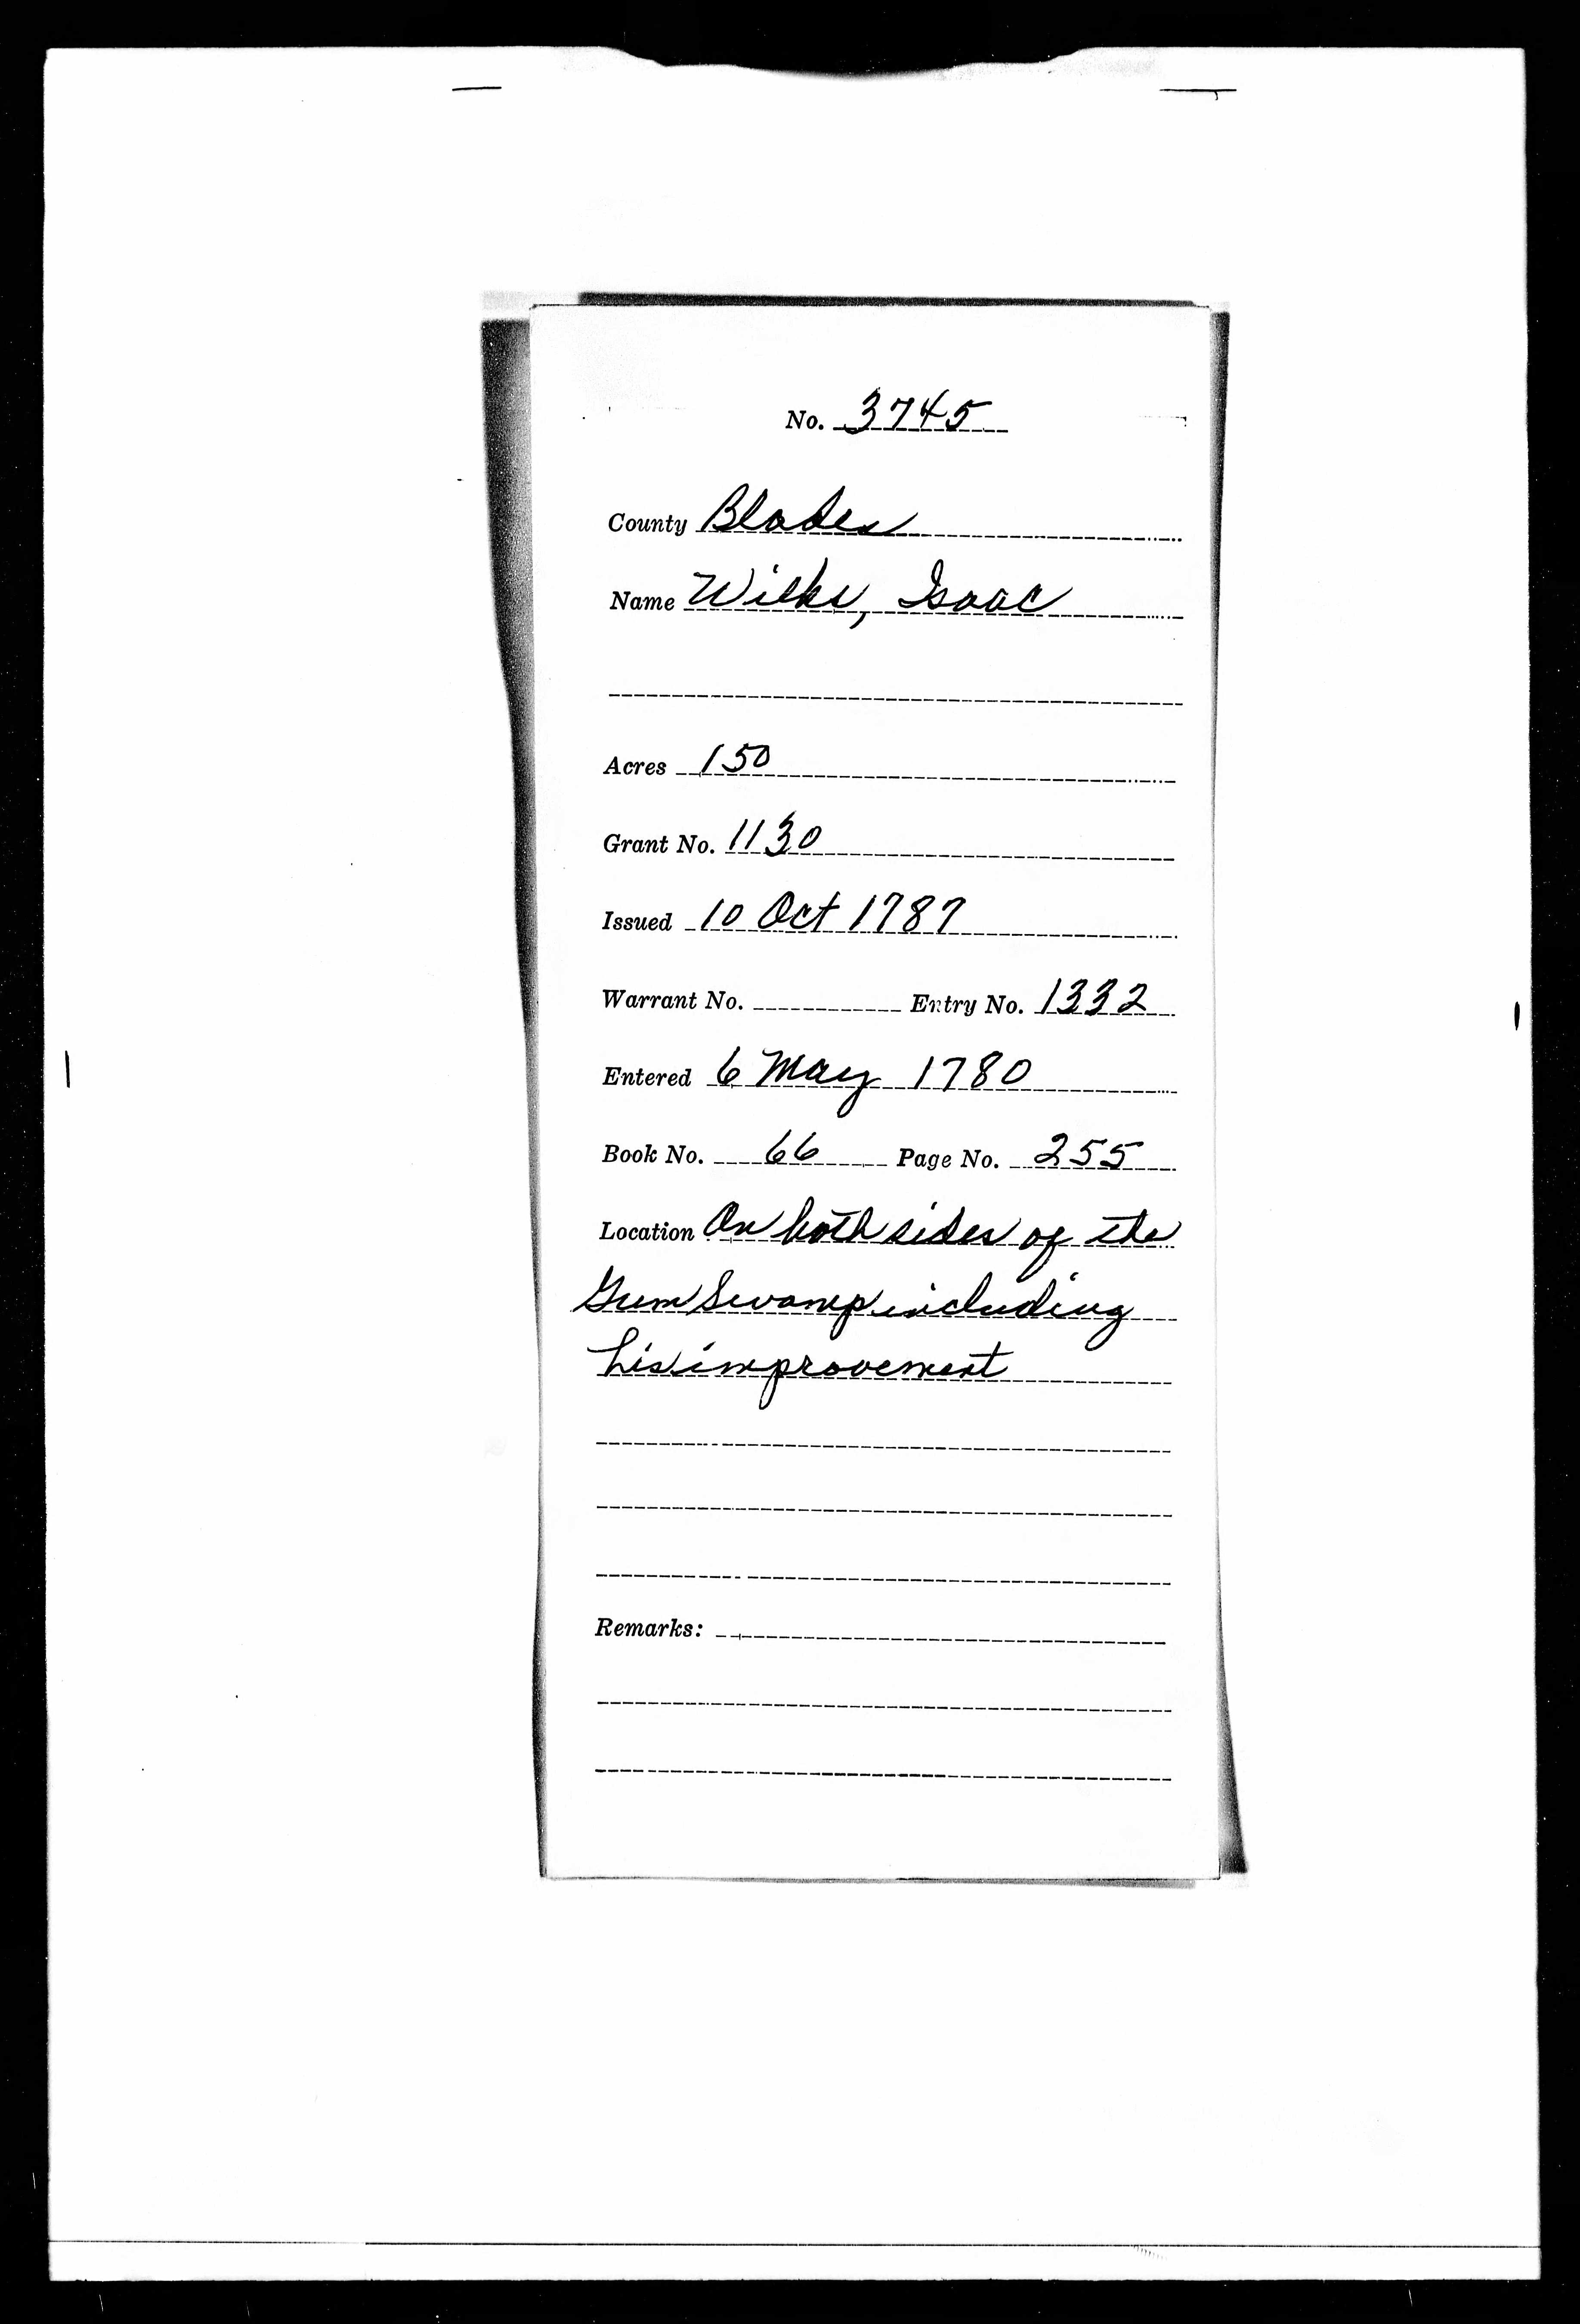 No. 3745
County Bladen
Name Wilks, Isaac
Acres 150
Grant No. 1130
Issued 10 Oct 1787
Warrant No. Entry No. 1332
Entered 6 May 1780
Book No. 66 Page No. 255
Location On both sides of the
Gum Swamp including
his improvement
Remarks: